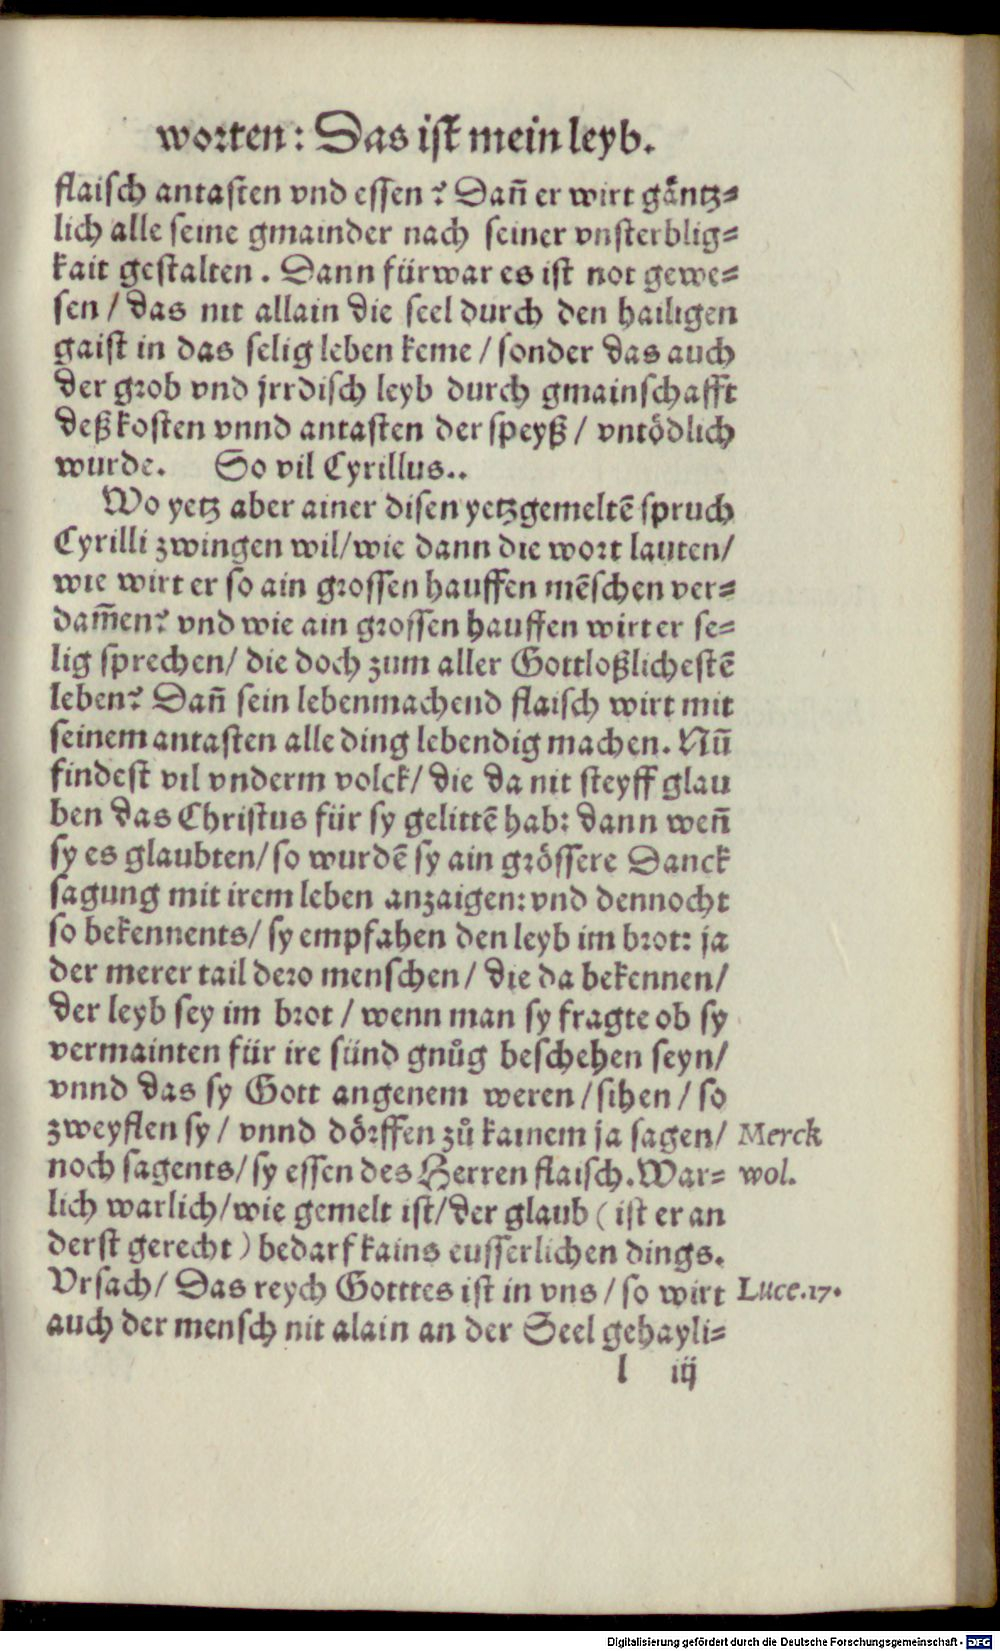 worten: Das ist mein leyb.
flaisch antasten vnd essen? Dañ er wirt gäntz=
lich alle seine gmainder nach seiner vnsterblig=
kait gestalten. Dann fürwar es ist not gewe=
sen / das nit allain die seel durch den hailigen
gaist in das selig leben keme / sonder das auch
der grob vnd jrrdisch leyb durch gmainschafft
deß kosten vnnd antasten der speyß / vntödlich
wurde. So vil Cyrillus..
Wo yetz aber ainer disen yetzgemeltē spruch
Cyrilli zwingen wil/wie dann die wort lauten/
wie wirt er so ain grossen hauffen mēschen ver=
dam̄en? vnd wie ain grossen hauffen wirt er se=
lig sprechen/ die doch zum aller Gottloßlichestē
leben? Dañ sein lebenmachend flaisch wirt mit
seinem antasten alle ding lebendig machen. Nun̄
findest vil vnderm volck/ die da nit steyff glau
ben das Christus für sy gelittē hab: dann weñ
sy es glaubten/ so wurdē sy ain grössere Danck
sagung mit irem leben anzaigen: vnd dennocht
so bekennents/ sy empfahen den leyb im brot: ja
der merer tail dero menschen/ die da bekennen/
der leyb sey im brot / wenn man sy fragte ob sy
vermainten für ire sünd gnůg beschehen seyn/
vnnd das sy Gott angenem weren / sihen / so
zweyflen sy / vnnd dörffen zů kainem ja sagen/ Merck
noch sagents/ sy essen des Herren flaisch. War= wol.
lich warlich/wie gemelt ist/der glaub ( ist er an
derst gerecht ) bedarf kains eusserlichen dings.
Vrsach/ Das reych Gotttes ist in vns / so wirt Luce.17.
auch der mensch nit alain an der Seel gehayli=
l iij
Digitalisierung gefördert durch die Deutsche Forschungsgemeinschaft - DFG